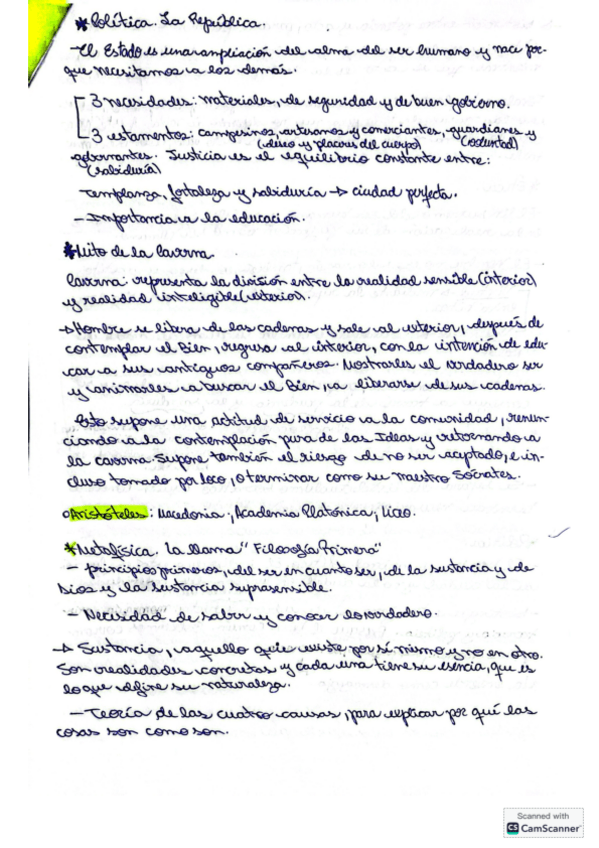 *Política. La República.
- El Estado es una ampliación del alma del ser humano y nace por-
que necesitamos a los demás.
3 necesidades: materiales, de seguridad y de buen gobierno.
3 estamentos: campesinos, artesanos y comerciantes, guardianes y
(deseo y placeres del cuerpo)
gobernantes. Justicia es el equilibrio constante entre:
(sabiduría)
Templanza, fortaleza y sabiduría → ciudad perfecta.
- Importancia a la educación.
*Mito de la Caverna
Caverna: representa la división entre la realidad sensible (interior)
y realidad inteligible (exterior).
→ Hombre se libera de las cadenas y sale al exterior, después de
contemplar el Bien, regresa al interior, con la intención de edu-
car a sus antiguos compañeros. Mostrarles el verdadero ser
y animarles a buscar el Bien, a liberarse de sus cadenas.
Esto supone una actitud de servicio a la comunidad, renun-
ciando a la contemplación pura de las Ideas y retornando a
la caverna. Supone también el riesgo de no ser aceptado, e in-
cluso tomado por loco, o terminar como su maestro Sócrates.
o Aristóteles: Macedonia, Academia Platónica, Liceo.
*Metafísica. La llama "Filosofía Primera"
- principios primeros, del ser en cuanto ser, de la sustancia y de
Dios y la sustancia suprasensible.
- Necesidad de saber y conocer lo verdadero.
→ Sustancia, aquello que existe por sí mismo y no en otro.
Son realidades concretas y cada una tiene su esencia, que es
lo que define su naturaleza.
- Teoría de las cuatro causas, para explicar por qué las
cosas son como son.
Scanned with
CS CamScanner